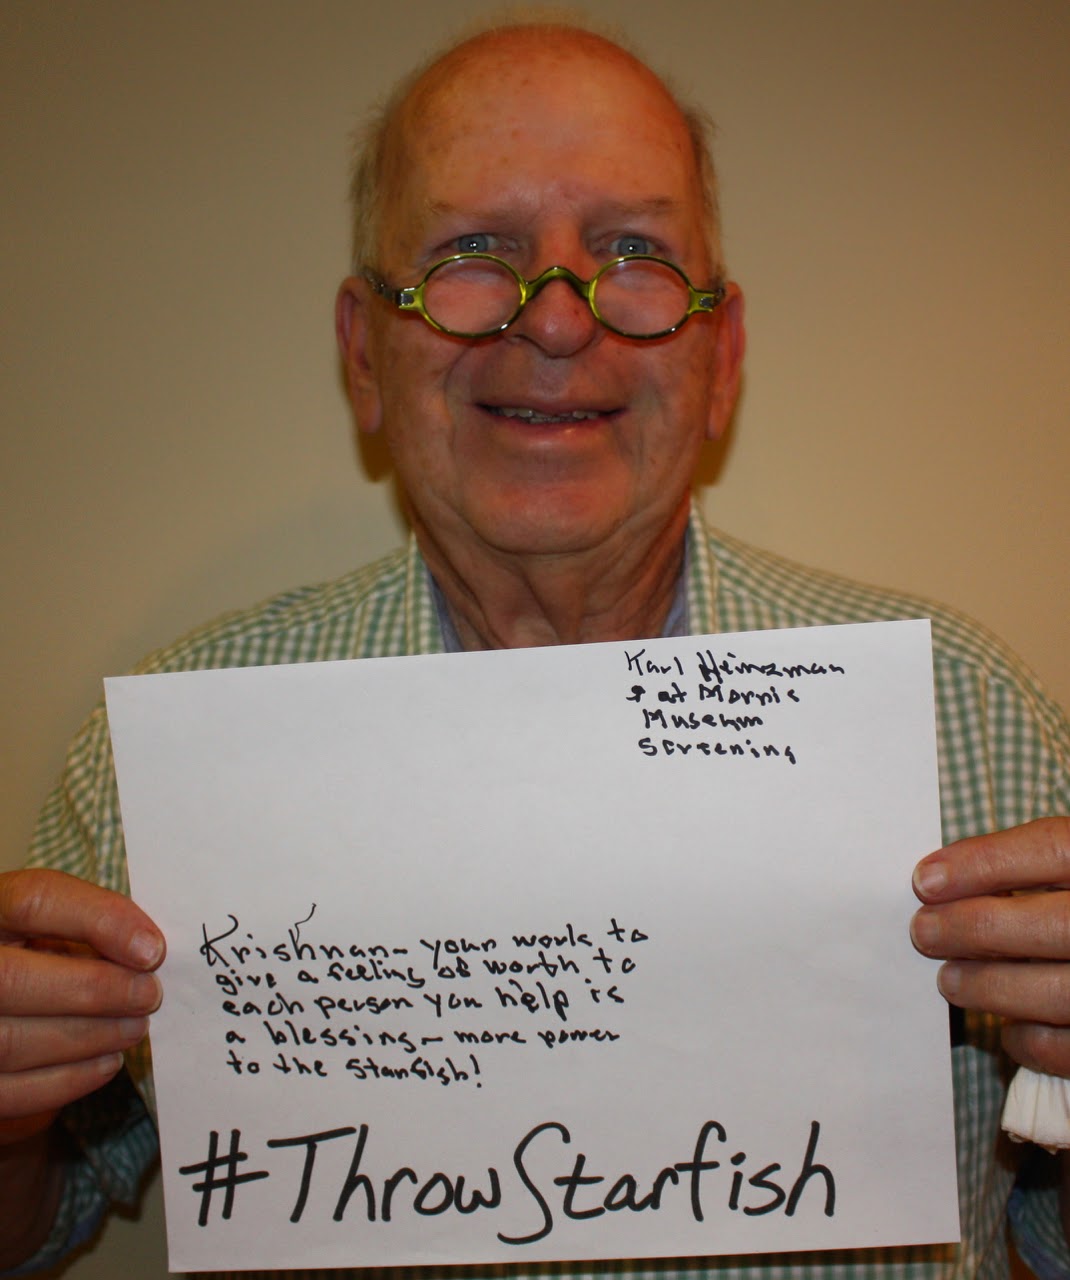 Karl Heinzman
at Morris
Museum
Screening
Krishnan - your work to
give a feeling of worth to
each person you help is
a blessing - more power
to the starfish!
#ThrowStarfish